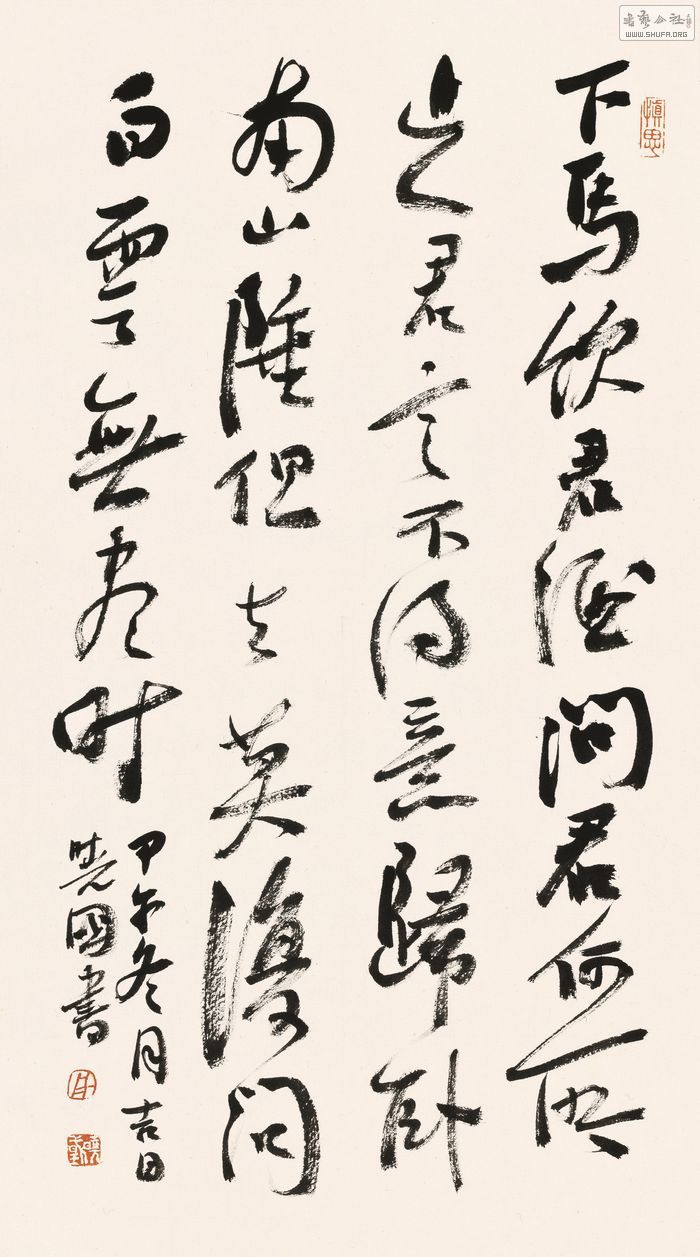 書藝公社
WWW.SHUFA.ORG
慎思
下馬飲君酒問君何所
之君言不得意歸卧
南山陲但去莫復問
白雲無尽时
甲午冬月吉日
曉國書